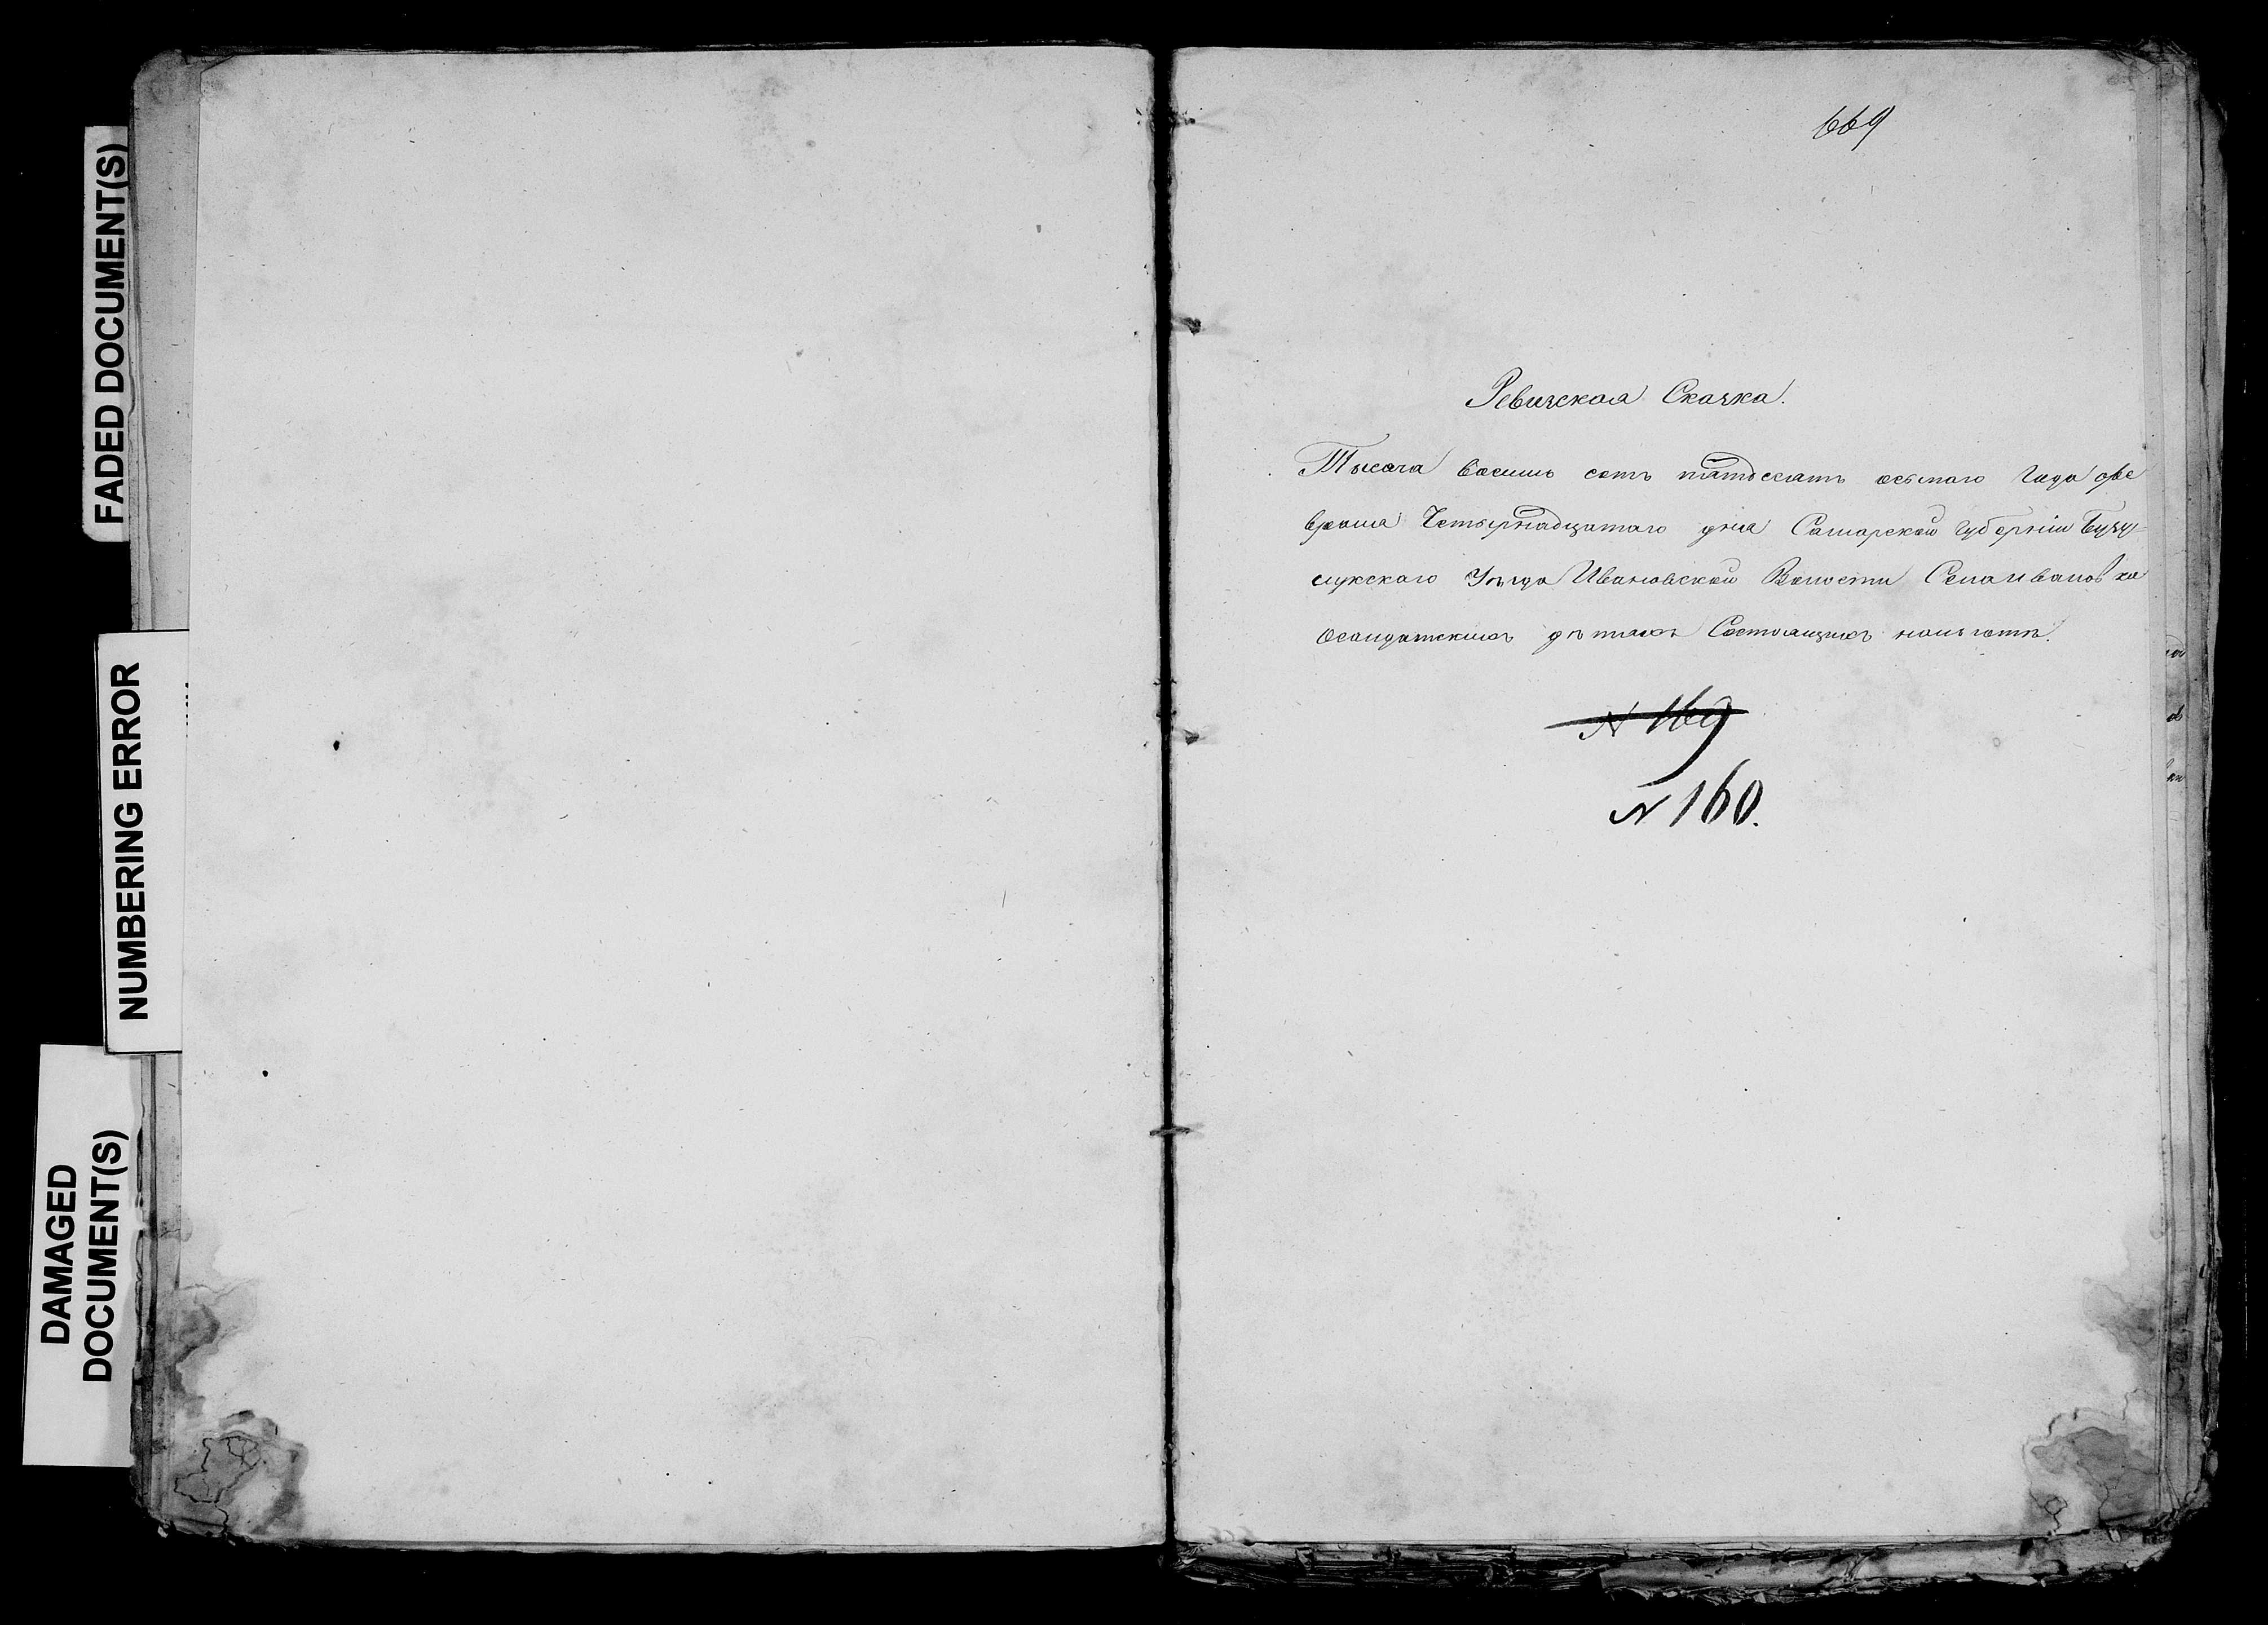 FADED DOCUMENT(S)
NUMBERING ERROR
DAMAGED
DOCUMENT(S)
669
Ревизская Сказка.
Тысяча восемь сотъ пятьдесятъ осьмаго Года фе
враля Четырнадцатаго дня Самарской Губерніи Бузу-
лукскаго Уѣзда Ивановской Волости Села Ивановки
Осолдатскихъ дѣтяхъ Состоящихъ нальготѣ.
N 169
N 160.